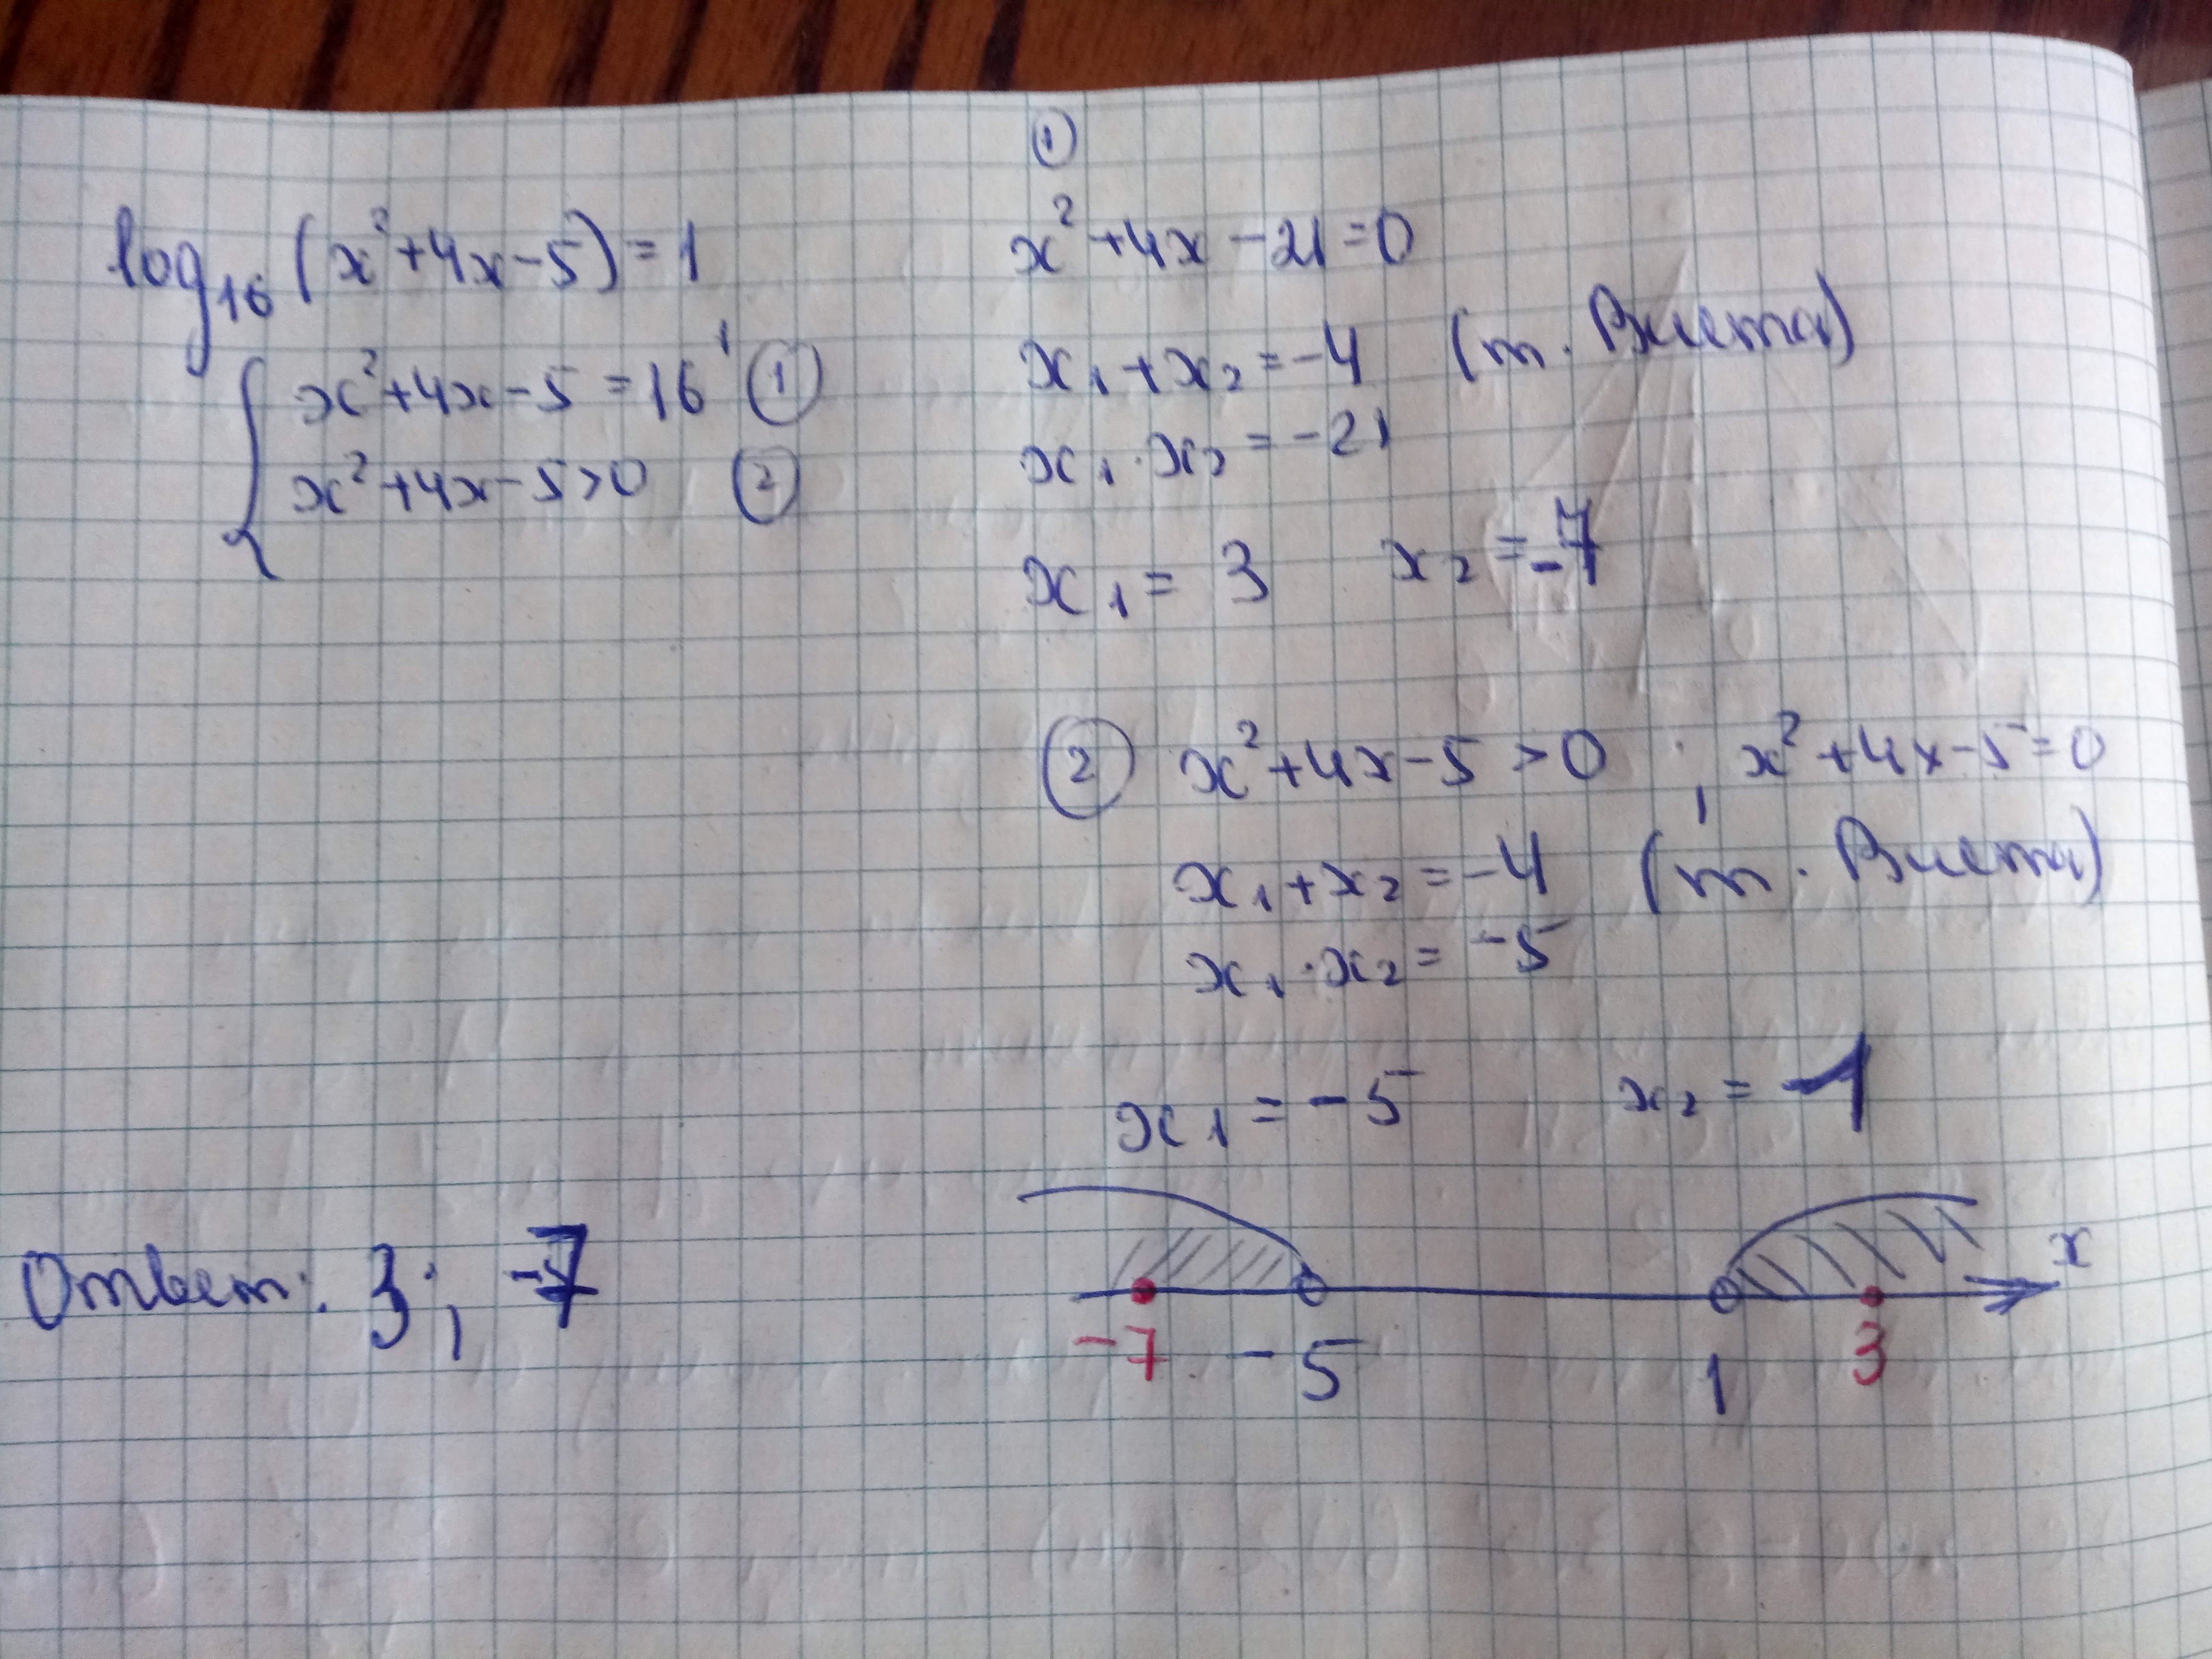 log₁₆ (x²+4x-5) = 1
{ x²+4x-5 = 16¹ ①
x²+4x-5>0 ②
①
x²+4x-21=0
x₁+x₂=-4 (т. Виета)
x₁·x₂=-21
x₁= 3 x₂=-7
② x²+4x-5 >0 ; x²+4x-5=0
x₁+x₂=-4 (т. Виета)
x₁·x₂= -5
x₁=-5 x₂= -1
x
-7 -5 1 3
Ответ: 3; -7